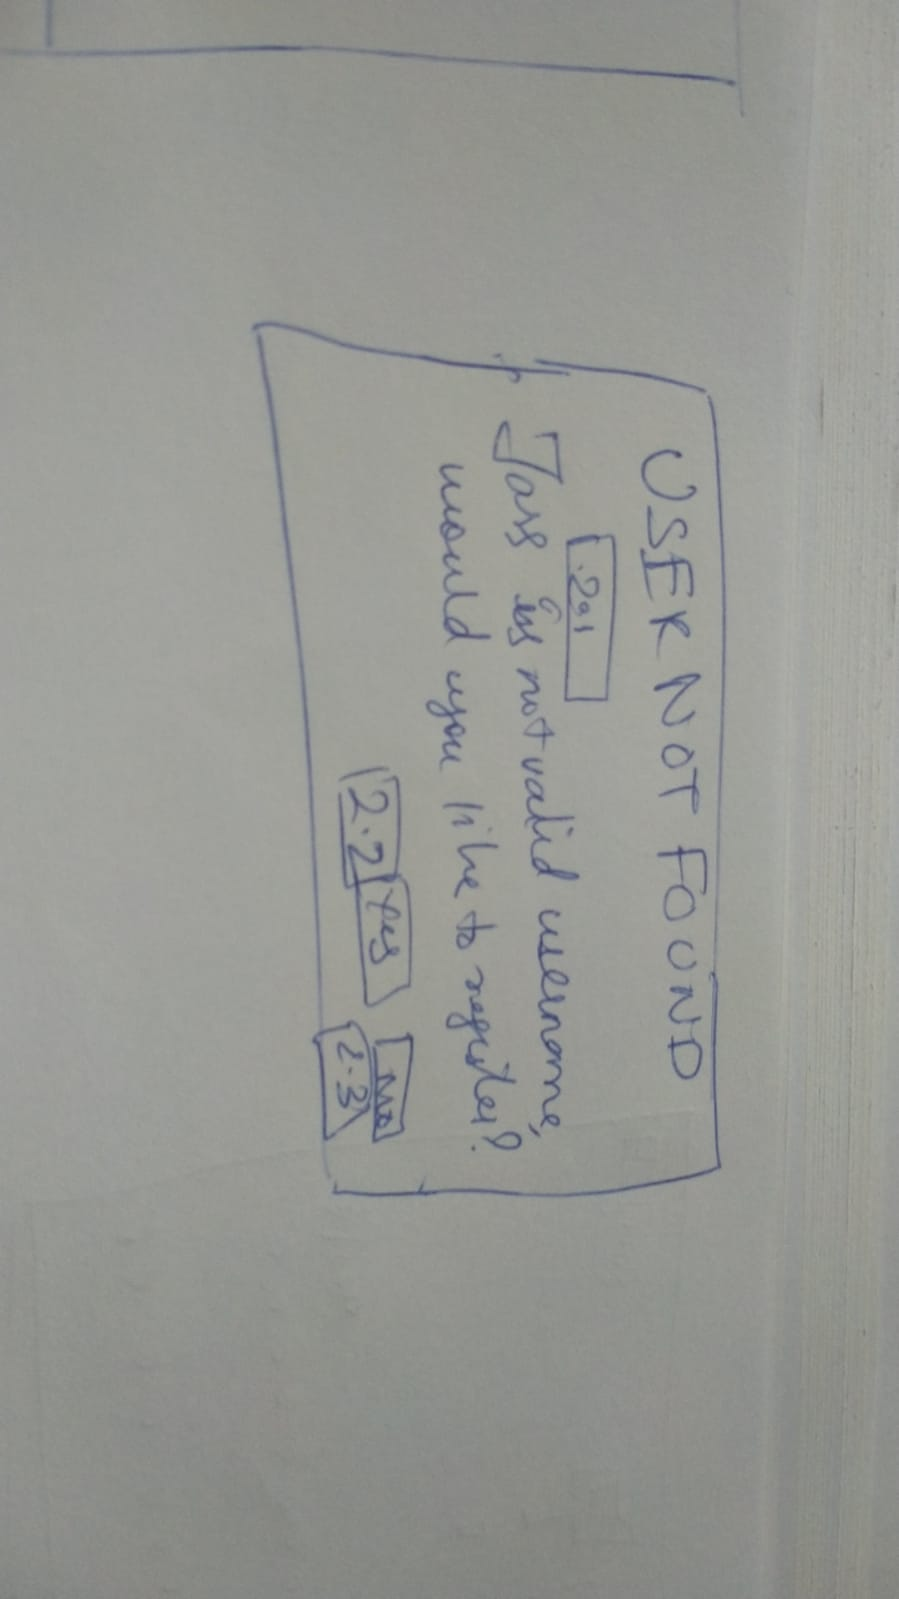 USER NOT FOUND
2.1
Jass is not valid username,
would you like to register?
2.2 Yes No
2.3